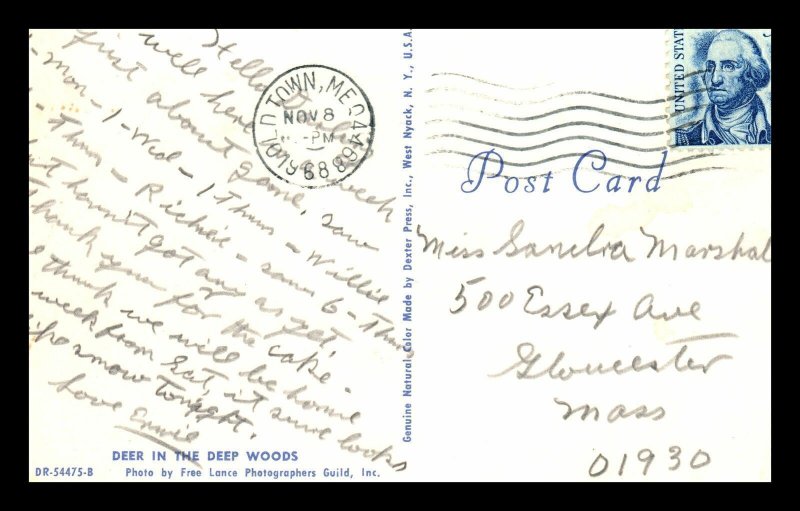 Hello
well here
first about game, saw week
mon - 1 - Wed - 1 Thurs - Willie
Thurs - Richie - saw 6 - Thurs
but havn't got any as yet,
Thank you for the cake -
think we will be home
week from Sat, it sure looks
like snow tonight.
Love Ernie
DEER IN THE DEEP WOODS
DR-54475-B
Photo by Free Lance Photographers Guild, Inc.
Genuine Natural Color Made by Dexter Press, Inc., West Nyack, N. Y., U.S.A.
OLD TOWN, ME 04468
NOV 8
-PM
1968
UNITED STAT
Post Card
Miss Sandra Marshal
500 Essex Ave
Gloucester
Mass
01930